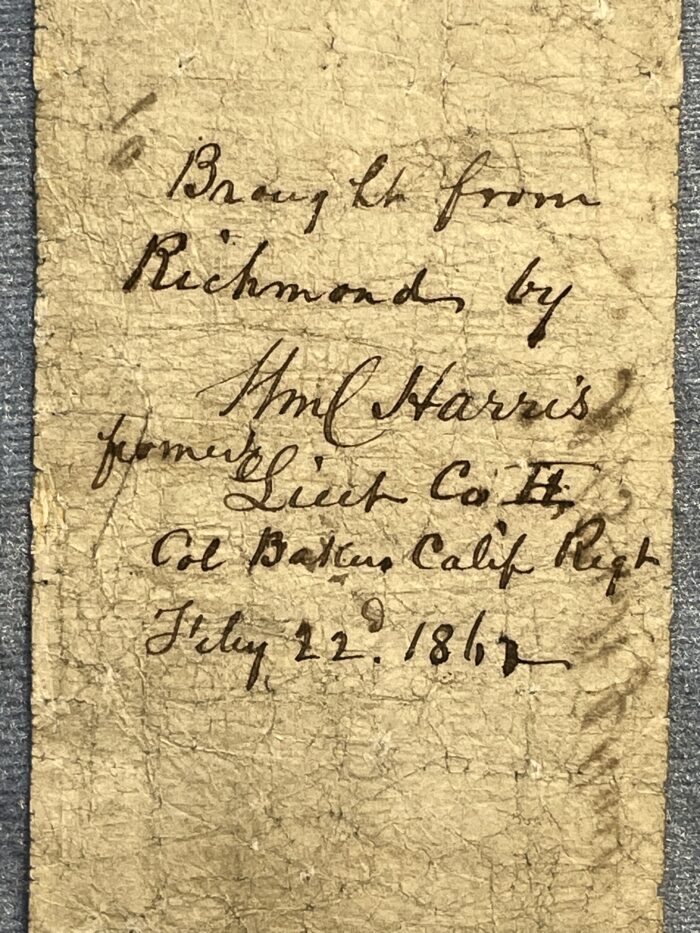 Brought from
Richmond by
Wm C Harris
formerly
Lieut Co H
Col Bakers Calif Regt
Feby 22d. 1862